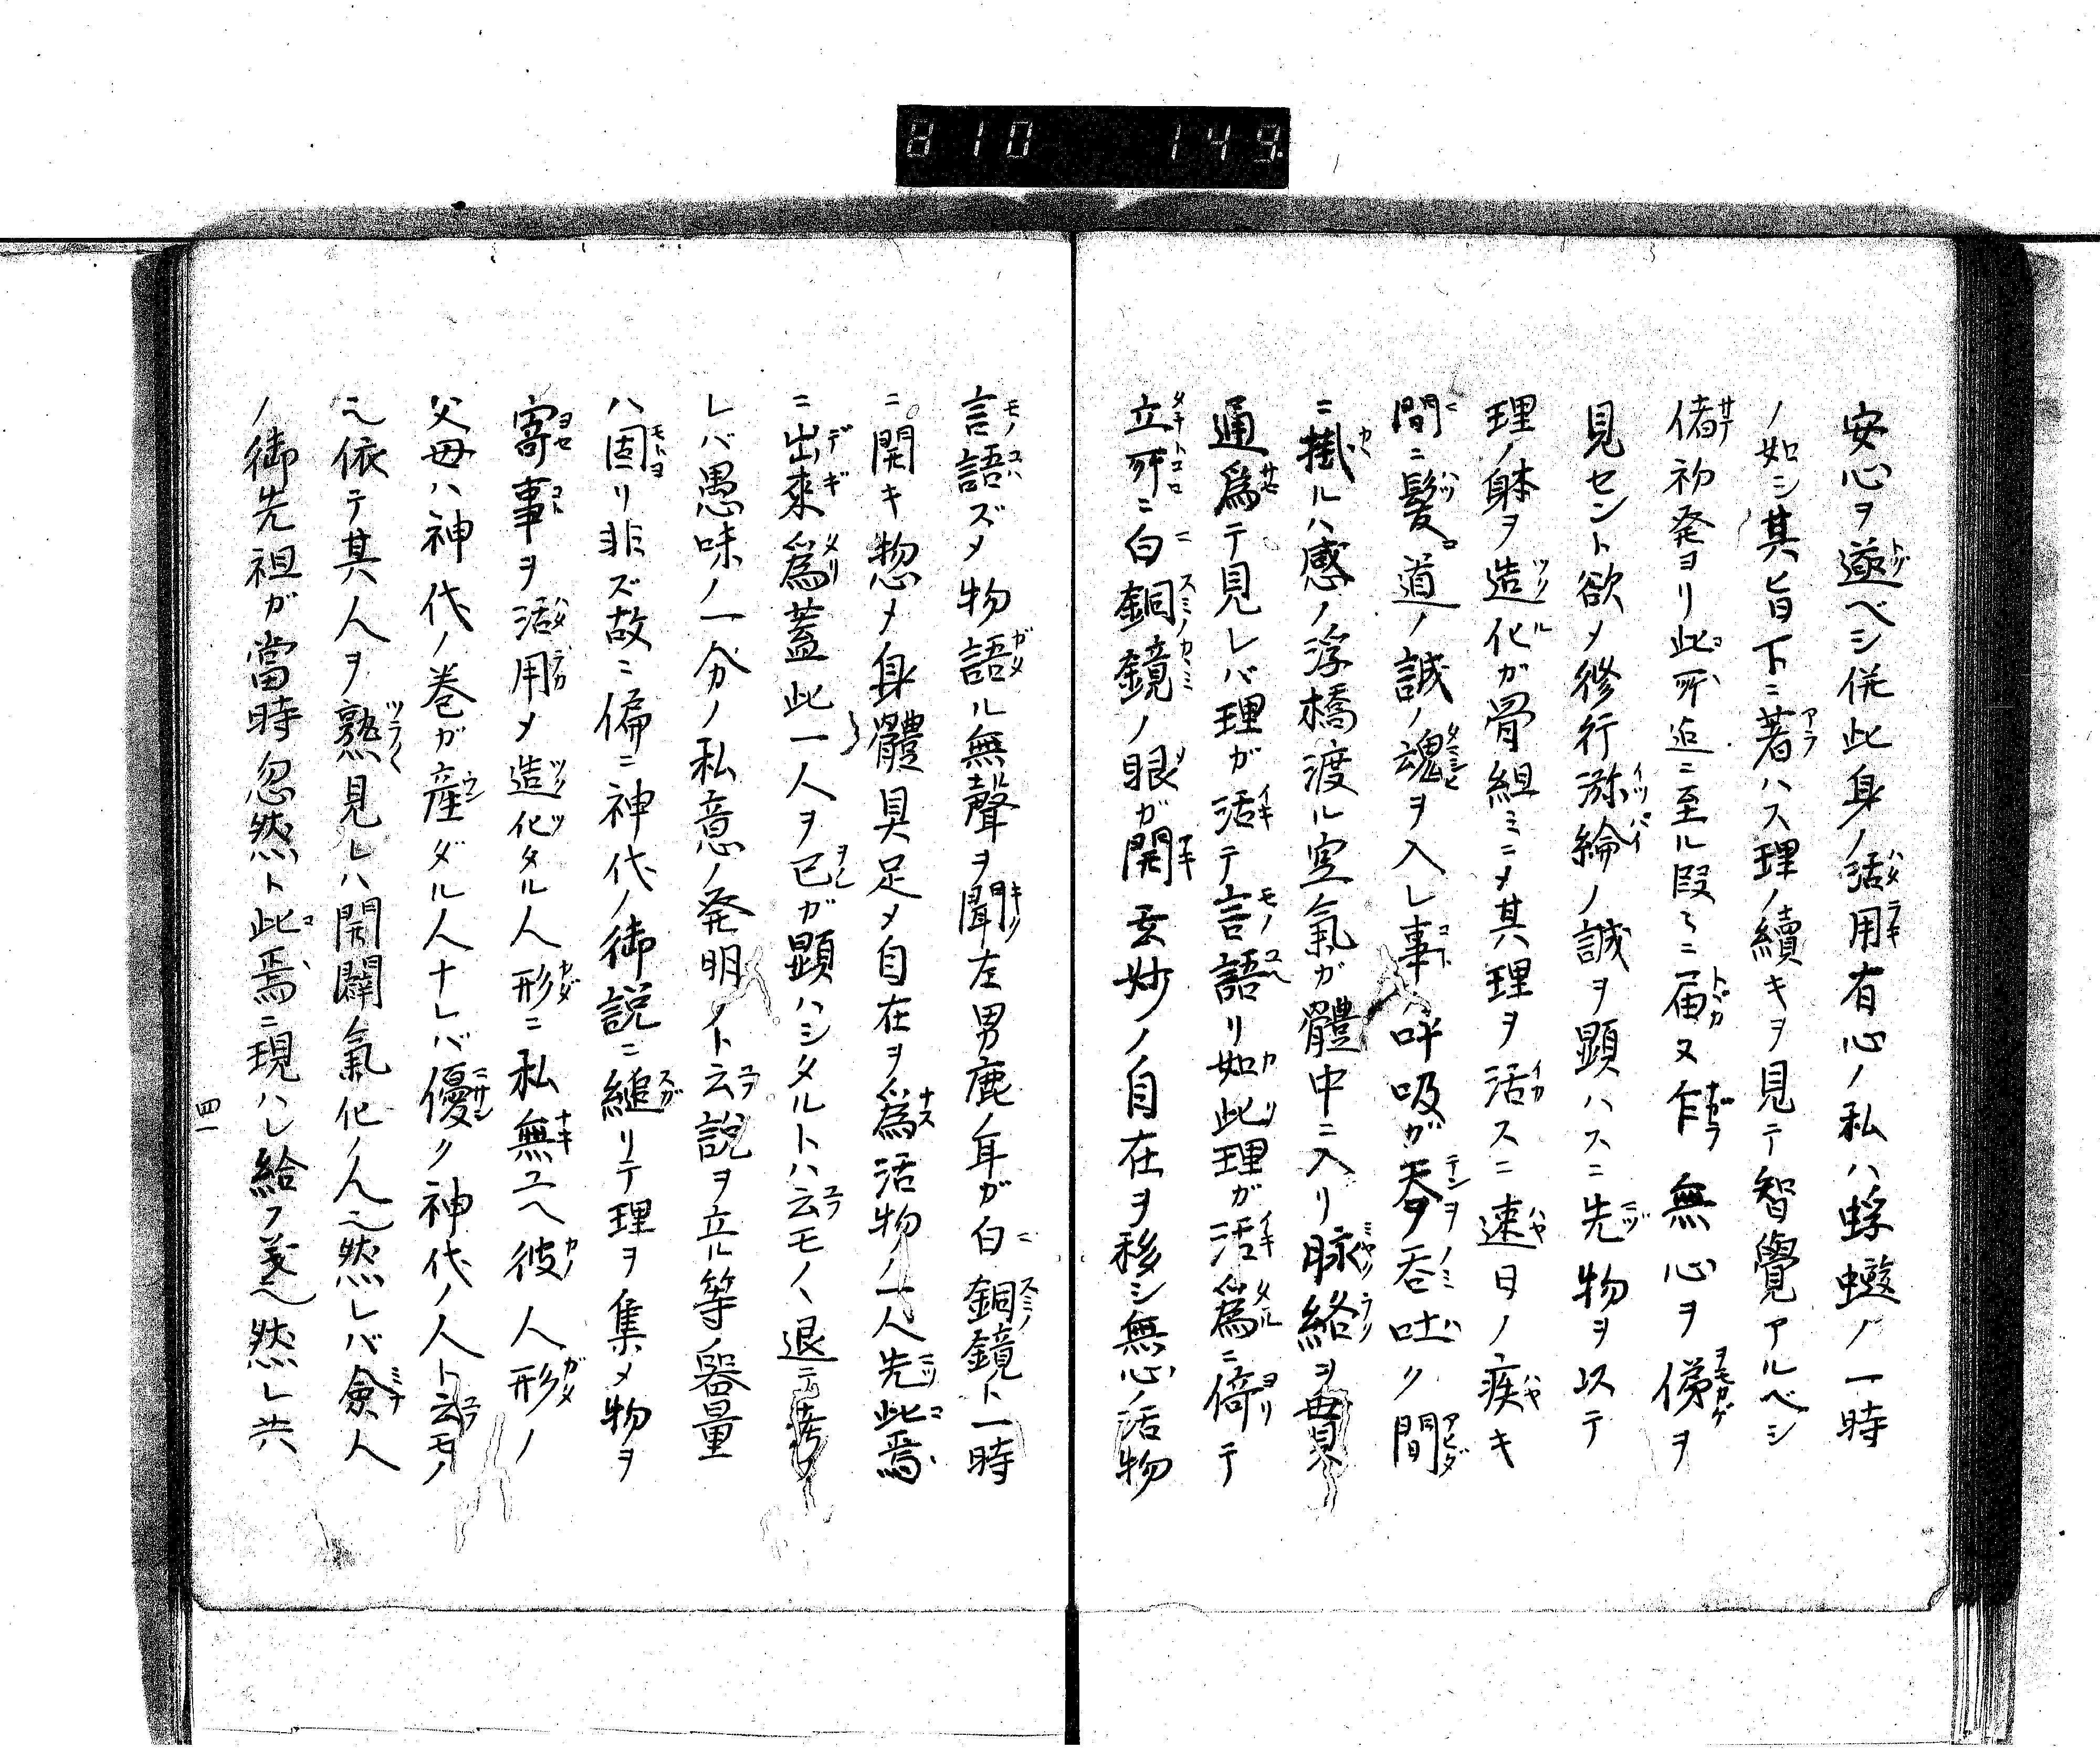 810 149.
安心ヲ遂ベシ併此身ノ活用有心ノ私ハ蜉蝣ノ一時
ノ如シ其旨下ニ著ハス理ノ續キヲ見テ智覺アルベシ
偖初発ヨリ此所迄ニ至ル段々ニ届又乍無心ヲ俤ヲ
見セント欲メ修行弥綸ノ誠ヲ顕ハスニ先物ヲ以テ
理ノ躰ヲ造化ガ骨組ミニメ其理ヲ活スニ速日ノ疾キ
間ニ髪道ノ誠ノ魂ヲ入レ事ハ呼吸ガ天ヲ呑吐ク間
ニ掛ルハ感ノ浮橋渡ル空氣ガ體中ニ入リ脉絡ヲ貫
通爲テ見レバ理ガ活テ言語リ如此理ガ活爲ニ倚テ
立所ニ白銅鏡ノ眼ガ開玄妙ノ自在ヲ移シ無心ノ活物
言語ズメ物語ル無聲ヲ聞左男鹿ノ耳ガ白銅鏡ト一時
ニ開キ惣メ身體具足メ自在ヲ爲活物ノ一人先此焉
ニ出來爲蓋此一人ヲ已ガ顕ハシタルトハ云モノヽ退テ考フ
レバ愚味ノ一分ノ私意ノ発明ノト云説ヲ立ル等ノ器量
ハ固リ非ズ故ニ偏ニ神代ノ御説ニ縋リテ理ヲ集メ物ヲ
寄事ヲ活用メ造化タル人形ニ私無ユヘ彼人形ノ
父母ハ神代ノ巻ガ産ダル人ナレバ優ク神代ノ人ト云モノ
也依テ其人ヲ熟見レハ開闢氣化ノ人也然レバ僉人
ノ御先祖ガ當時忽然ト此焉ニ現ハレ給フ義也然レ共
四一